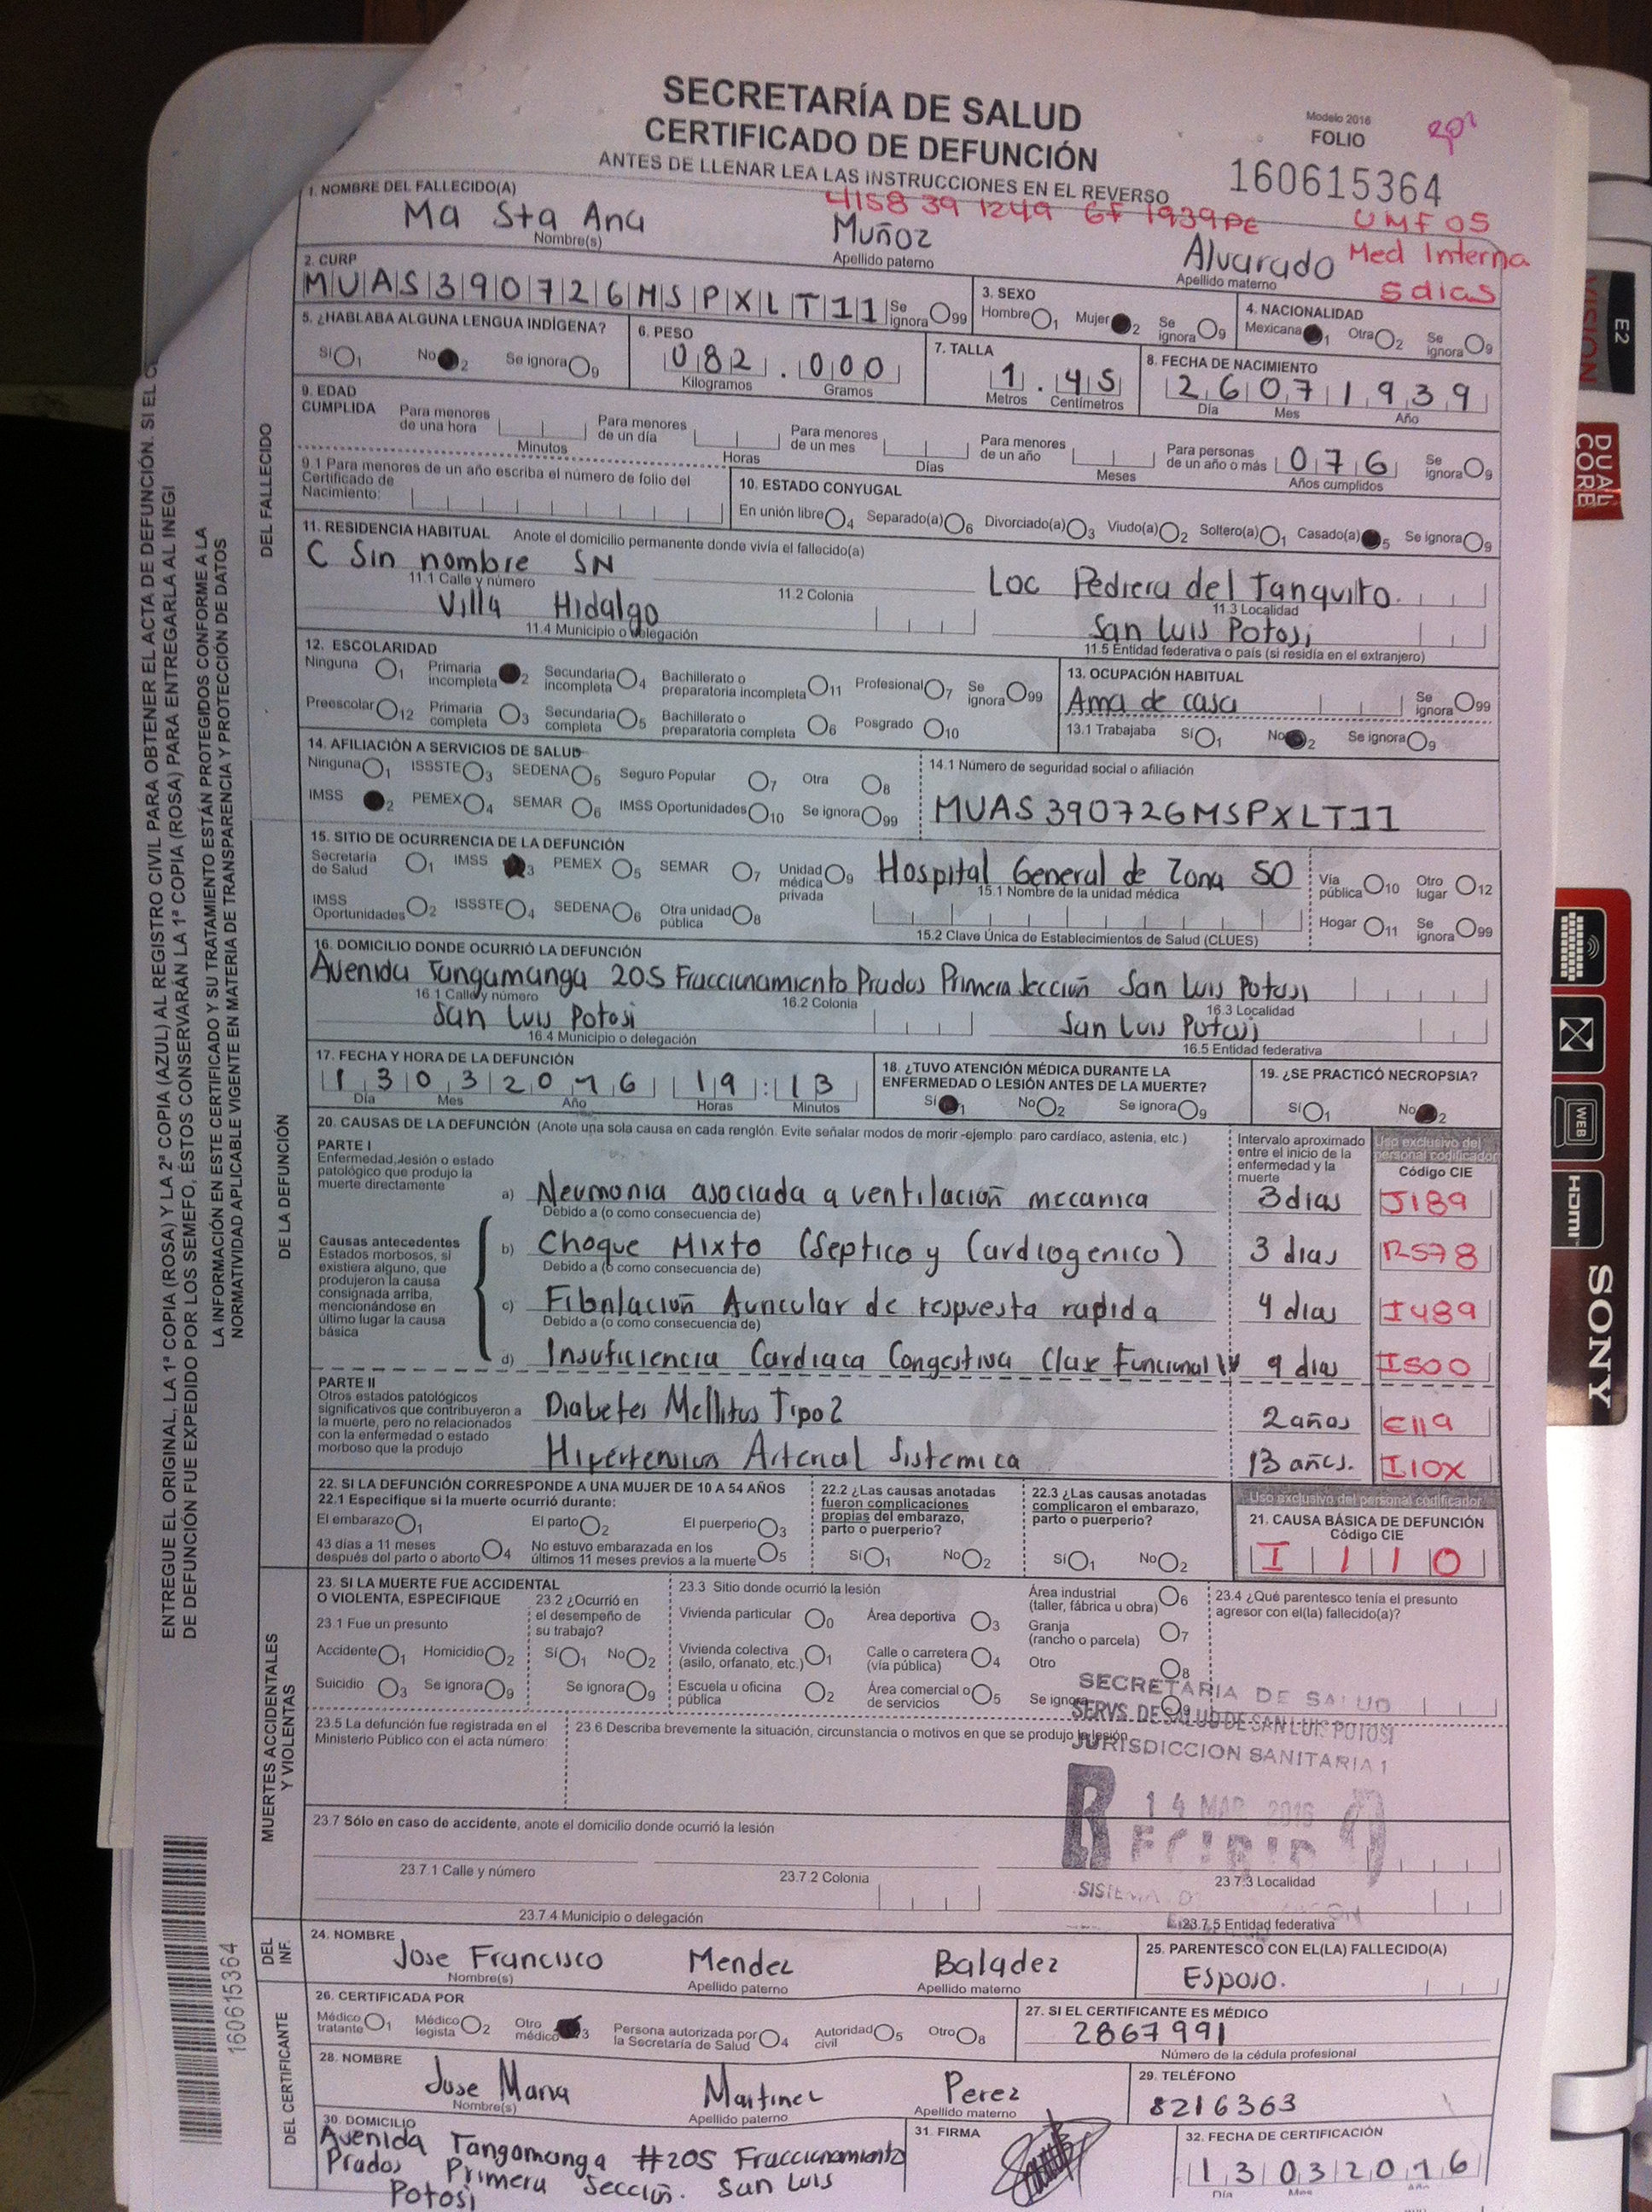 SECRETARÍA DE SALUD
CERTIFICADO DE DEFUNCIÓN
ANTES DE LLENAR LEA LAS INSTRUCCIONES EN EL REVERSO
Modelo 2016
FOLIO
160615364
4158 39 1249 6F 1939PE UMF 05
Med Interna
5 dias
1. NOMBRE DEL FALLECIDO(A)
Ma Sta Ana Muñoz Alvarado
Nombre(s) Apellido paterno Apellido materno
2. CURP
MUAS390726MSPXLT11 Se ignora 99
3. SEXO
Hombre 1 Mujer 2 Se ignora 9
4. NACIONALIDAD
Mexicana 1 Otra 2 Se ignora 9
5. ¿HABLABA ALGUNA LENGUA INDÍGENA?
Sí 1 No 2 Se ignora 9
6. PESO
082.000
Kilogramos Gramos
7. TALLA
1.45
Metros Centímetros
8. FECHA DE NACIMIENTO
26071939
Día Mes Año
9. EDAD CUMPLIDA
Para menores de una hora Minutos
Para menores de un día Horas
Para menores de un mes Días
Para menores de un año Meses
Para personas de un año o más 076 Años cumplidos
Se ignora 9
9.1 Para menores de un año escriba el número de folio del Certificado de Nacimiento:
10. ESTADO CONYUGAL
En unión libre 4 Separado(a) 6 Divorciado(a) 3 Viudo(a) 2 Soltero(a) 1 Casado(a) 5 Se ignora 9
11. RESIDENCIA HABITUAL Anote el domicilio permanente donde vivía el fallecido(a)
C Sin nombre SN Loc Pedrera del Tanquito
11.1 Calle y número 11.2 Colonia 11.3 Localidad
Villa Hidalgo San Luis Potosi
11.4 Municipio o delegación 11.5 Entidad federativa o país (si residía en el extranjero)
12. ESCOLARIDAD
Ninguna 1 Primaria incompleta 2 Secundaria incompleta 4 Bachillerato o preparatoria incompleta 11 Profesional 7 Se ignora 99
Preescolar 12 Primaria completa 3 Secundaria completa 5 Bachillerato o preparatoria completa 6 Posgrado 10
13. OCUPACIÓN HABITUAL
Ama de casa Se ignora 99
13.1 Trabajaba Sí 1 No 2 Se ignora 9
14. AFILIACIÓN A SERVICIOS DE SALUD
Ninguna 1 ISSSTE 3 SEDENA 5 Seguro Popular 7 Otra 8
IMSS 2 PEMEX 4 SEMAR 6 IMSS Oportunidades 10 Se ignora 99
14.1 Número de seguridad social o afiliación
MUAS390726MSPXLT11
15. SITIO DE OCURRENCIA DE LA DEFUNCIÓN
Secretaría de Salud 1 IMSS 3 PEMEX 5 SEMAR 7 Unidad médica privada 9
IMSS Oportunidades 2 ISSSTE 4 SEDENA 6 Otra unidad pública 8
Hospital General de Zona 50
15.1 Nombre de la unidad médica
15.2 Clave Única de Establecimientos de Salud (CLUES)
Vía pública 10 Otro lugar 12
Hogar 11 Se ignora 99
16. DOMICILIO DONDE OCURRIÓ LA DEFUNCIÓN
Avenida Tangamanga 205 Fraccionamiento Prados Primera Sección San Luis Potosi
16.1 Calle y número 16.2 Colonia 16.3 Localidad
San Luis Potosi San Luis Potosi
16.4 Municipio o delegación 16.5 Entidad federativa
17. FECHA Y HORA DE LA DEFUNCIÓN
13032016 19:13
Día Mes Año Horas Minutos
18. ¿TUVO ATENCIÓN MÉDICA DURANTE LA ENFERMEDAD O LESIÓN ANTES DE LA MUERTE?
Sí 1 No 2 Se ignora 9
19. ¿SE PRACTICÓ NECROPSIA?
Sí 1 No 2
20. CAUSAS DE LA DEFUNCIÓN (Anote una sola causa en cada renglón. Evite señalar modos de morir -ejemplo: paro cardíaco, astenia, etc.)
Intervalo aproximado entre el inicio de la enfermedad y la muerte
Uso exclusivo del personal codificador
Código CIE
PARTE I
Enfermedad, lesión o estado patológico que produjo la muerte directamente
a) Neumonia asociada a ventilación mecanica 3 dias J189
Debido a (o como consecuencia de)
Causas antecedentes
Estados morbosos, si existiera alguno, que produjeron la causa consignada arriba, mencionándose en último lugar la causa básica
b) Choque Mixto (Septico y Cardiogenico) 3 dias R578
Debido a (o como consecuencia de)
c) Fibrilación Auricular de respuesta rapida 4 dias I489
Debido a (o como consecuencia de)
d) Insuficiencia Cardiaca Congestiva Clase Funcional IV 9 dias I500
PARTE II
Otros estados patológicos significativos que contribuyeron a la muerte, pero no relacionados con la enfermedad o estado morboso que la produjo
Diabetes Mellitus Tipo 2 2 años E119
Hipertension Arterial Sistemica 13 años. I10X
22. SI LA DEFUNCIÓN CORRESPONDE A UNA MUJER DE 10 A 54 AÑOS
22.1 Especifique si la muerte ocurrió durante:
El embarazo 1 El parto 2 El puerperio 3
43 días a 11 meses después del parto o aborto 4 No estuvo embarazada en los últimos 11 meses previos a la muerte 5
22.2 ¿Las causas anotadas fueron complicaciones propias del embarazo, parto o puerperio?
Sí 1 No 2
22.3 ¿Las causas anotadas complicaron el embarazo, parto o puerperio?
Sí 1 No 2
Uso exclusivo del personal codificador
21. CAUSA BÁSICA DE DEFUNCIÓN
Código CIE
I110
23. SI LA MUERTE FUE ACCIDENTAL O VIOLENTA, ESPECIFIQUE
23.1 Fue un presunto
Accidente 1 Homicidio 2
Suicidio 3 Se ignora 9
23.2 ¿Ocurrió en el desempeño de su trabajo?
Sí 1 No 2
Se ignora 9
23.3 Sitio donde ocurrió la lesión
Vivienda particular 0 Área deportiva 3 Área industrial (taller, fábrica u obra) 6
Vivienda colectiva (asilo, orfanato, etc.) 1 Calle o carretera (vía pública) 4 Granja (rancho o parcela) 7
Escuela u oficina pública 2 Área comercial o de servicios 5 Otro 8
Se ignora 9
23.4 ¿Qué parentesco tenía el presunto agresor con el(la) fallecido(a)?
23.5 La defunción fue registrada en el Ministerio Público con el acta número:
23.6 Describa brevemente la situación, circunstancia o motivos en que se produjo la lesión
SECRETARIA DE SALUD
SERVS. DE SALUD DE SAN LUIS POTOSI
JURISDICCION SANITARIA 1
14 MAR 2016
RECIBIDO
23.7 Sólo en caso de accidente, anote el domicilio donde ocurrió la lesión
23.7.1 Calle y número 23.7.2 Colonia 23.7.3 Localidad
23.7.4 Municipio o delegación 23.7.5 Entidad federativa
24. NOMBRE
Jose Francisco Mendez Baladez
Nombre(s) Apellido paterno Apellido materno
25. PARENTESCO CON EL(LA) FALLECIDO(A)
Esposo.
26. CERTIFICADA POR
Médico tratante 1 Médico legista 2 Otro médico 3 Persona autorizada por la Secretaría de Salud 4 Autoridad civil 5 Otro 8
27. SI EL CERTIFICANTE ES MÉDICO
2867991
Número de la cédula profesional
28. NOMBRE
Jose Maria Martinez Perez
Nombre(s) Apellido paterno Apellido materno
29. TELÉFONO
8216363
30. DOMICILIO
Avenida Tangamanga #205 Fraccionamiento
Prados Primera Sección. San Luis
Potosi
31. FIRMA
32. FECHA DE CERTIFICACIÓN
13032016
Día Mes Año
DEL FALLECIDO
DE LA DEFUNCIÓN
MUERTES ACCIDENTALES Y VIOLENTAS
DEL INF.
DEL CERTIFICANTE
ENTREGUE EL ORIGINAL, LA 1ª COPIA (ROSA) Y LA 2ª COPIA (AZUL) AL REGISTRO CIVIL PARA OBTENER EL ACTA DE DEFUNCIÓN. SI EL
DE DEFUNCIÓN FUE EXPEDIDO POR LOS SEMEFO, ÉSTOS CONSERVARÁN LA 1ª COPIA (ROSA) PARA ENTREGARLA AL INEGI
LA INFORMACIÓN EN ESTE CERTIFICADO Y SU TRATAMIENTO ESTÁN PROTEGIDOS CONFORME A LA
NORMATIVIDAD APLICABLE VIGENTE EN MATERIA DE TRANSPARENCIA Y PROTECCIÓN DE DATOS
160615364
E2
VISION
DUAL CORE
WEB
HDMI
SONY